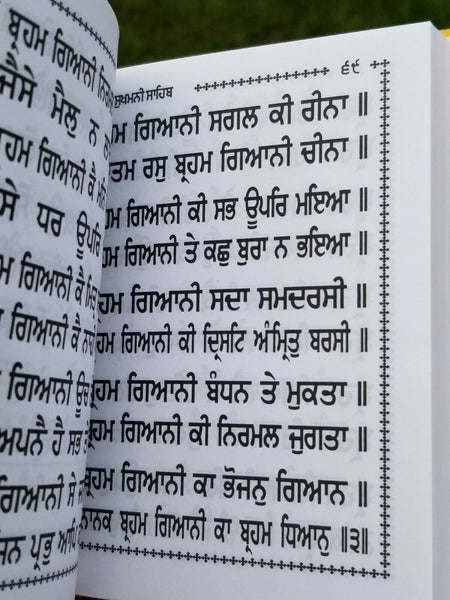 ਬ੍ਰਹਮ ਗਿਆਨੀ
ਜੈਸੇ ਮੈਲੁ ਨ
ਗਿਆਨੀ ਕੈ
ਧਰ ਊਪਰਿ
ਗਿਆਨੀ ਕੈ
ਗਿਆਨੀ ਕੈ
ਗਿਆਨੀ ਊਚ
ਹੈ ਸਭ
ਗਿਆਨੀ ਸੇ
ਪ੍ਰਭੁ
ਸੁਖਮਨੀ ਸਾਹਿਬ
੬੯
ਗਿਆਨੀ ਸਗਲ ਕੀ ਰੀਨਾ ॥
ਰਸੁ ਬ੍ਰਹਮ ਗਿਆਨੀ ਚੀਨਾ ॥
ਗਿਆਨੀ ਕੀ ਸਭ ਊਪਰਿ ਮਇਆ ॥
ਗਿਆਨੀ ਤੇ ਕਛੁ ਬੁਰਾ ਨ ਭਇਆ ॥
ਗਿਆਨੀ ਸਦਾ ਸਮਦਰਸੀ ॥
ਗਿਆਨੀ ਕੀ ਦ੍ਰਿਸਟਿ ਅੰਮ੍ਰਿਤੁ ਬਰਸੀ ॥
ਗਿਆਨੀ ਬੰਧਨ ਤੇ ਮੁਕਤਾ ॥
ਗਿਆਨੀ ਕੀ ਨਿਰਮਲ ਜੁਗਤਾ ॥
ਬ੍ਰਹਮ ਗਿਆਨੀ ਕਾ ਭੋਜਨੁ ਗਿਆਨ ॥
ਨਾਨਕ ਬ੍ਰਹਮ ਗਿਆਨੀ ਕਾ ਬ੍ਰਹਮ ਧਿਆਨੁ ॥੩॥